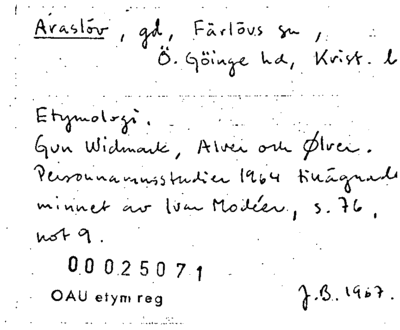 Araslöv, gd, Färlövs sn,
Ö. Göinge hd, Krist. l
Etymologi.
Gun Widmark, Alver och Ølver.
Personnamnsstudier 1964 tillägnade
minnet av Ivar Modéer, s. 76,
not 9.
00025071
OAU etym reg
J.B. 1967.